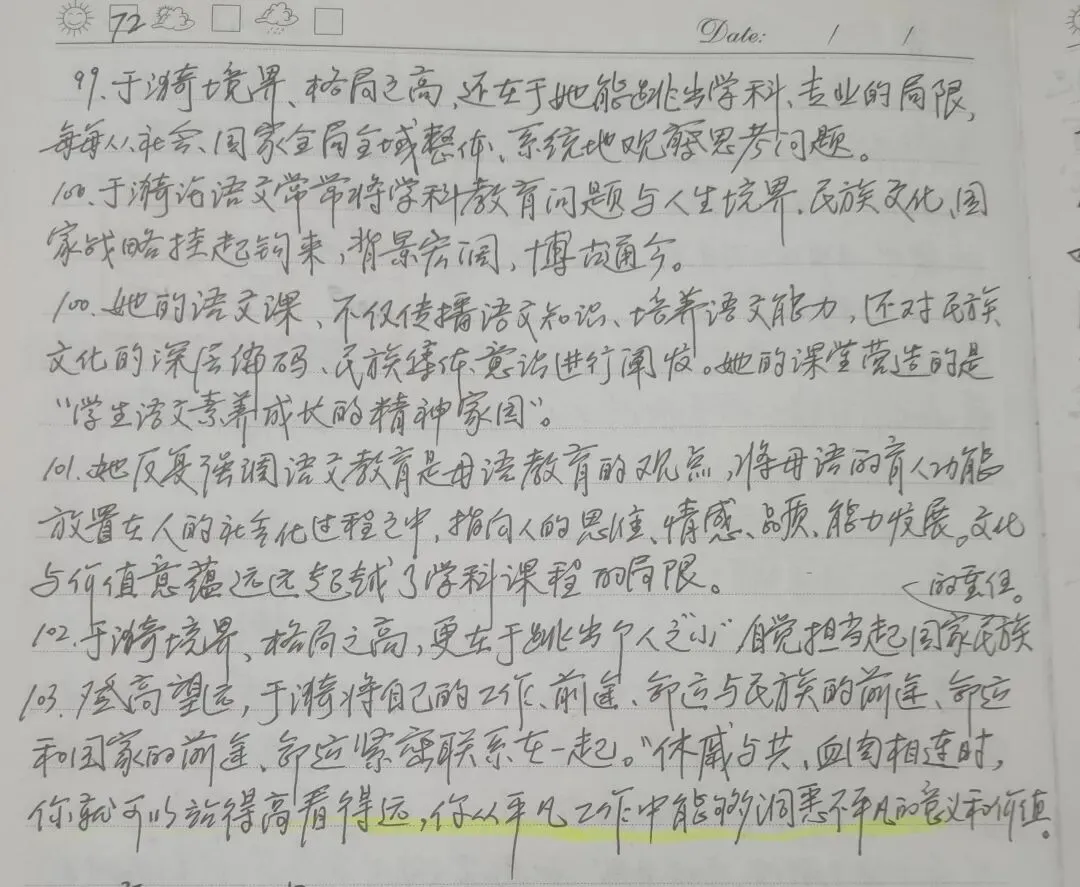 72
Date: / /
99.于漪境界、格局之高,还在于她能跳出学科、专业的局限,
每每从社会、国家全局全域整体、系统地观察思考问题。
100.于漪论语文常常将学科教育问题与人生境界、民族文化、国
家战略挂起钩来,背景宏阔,博古通今。
100.她的语文课、不仅传播语文知识、培养语文能力,还对民族
文化的深层编码、民族集体意识进行阐发。她的课堂营造的是
“学生语文素养成长的精神家园”。
101.她反复强调语文教育是母语教育的观点,将母语的育人功能
放置在人的社会化过程之中,指向人的思维、情感、品质、能力发展。文化
与价值意蕴远远超越了学科课程的局限。
的重任。
102.于漪境界、格局之高,更在于跳出个人之“小”自觉担当起国家民族
103.登高望远,于漪将自己的工作、前途、命运与民族的前途、命运
和国家的前途、命运紧密联系在一起。“休戚与共、血肉相连时,
你就可以站得高看得远,你从平凡工作中能够洞悉不平凡的意义和价值。